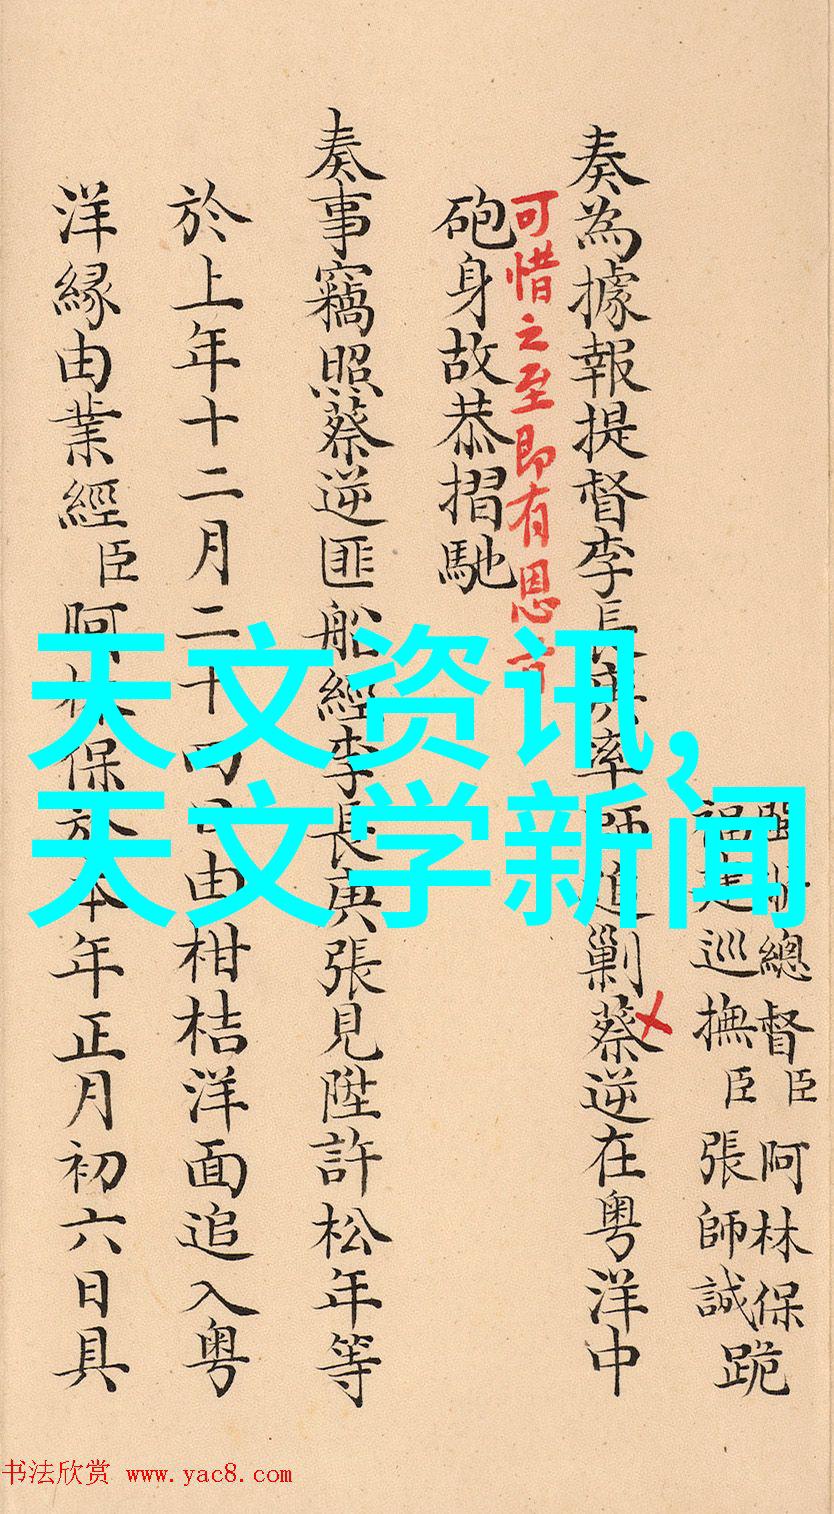 天文资讯,
天文学新闻
閩浙總督臣阿林保
福建巡撫臣張師誠跪
奏為據報提督李長庚率師追剿蔡逆在粵洋中
可惜之至即有恩旨
砲身故恭摺馳
奏事竊照蔡逆匪船經李長庚張見陞許松年等
於上年十二月二十四日由柑桔洋面追入粵
洋緣由業經臣阿林保於本年正月初六日具
书法欣赏 www.yac8.com